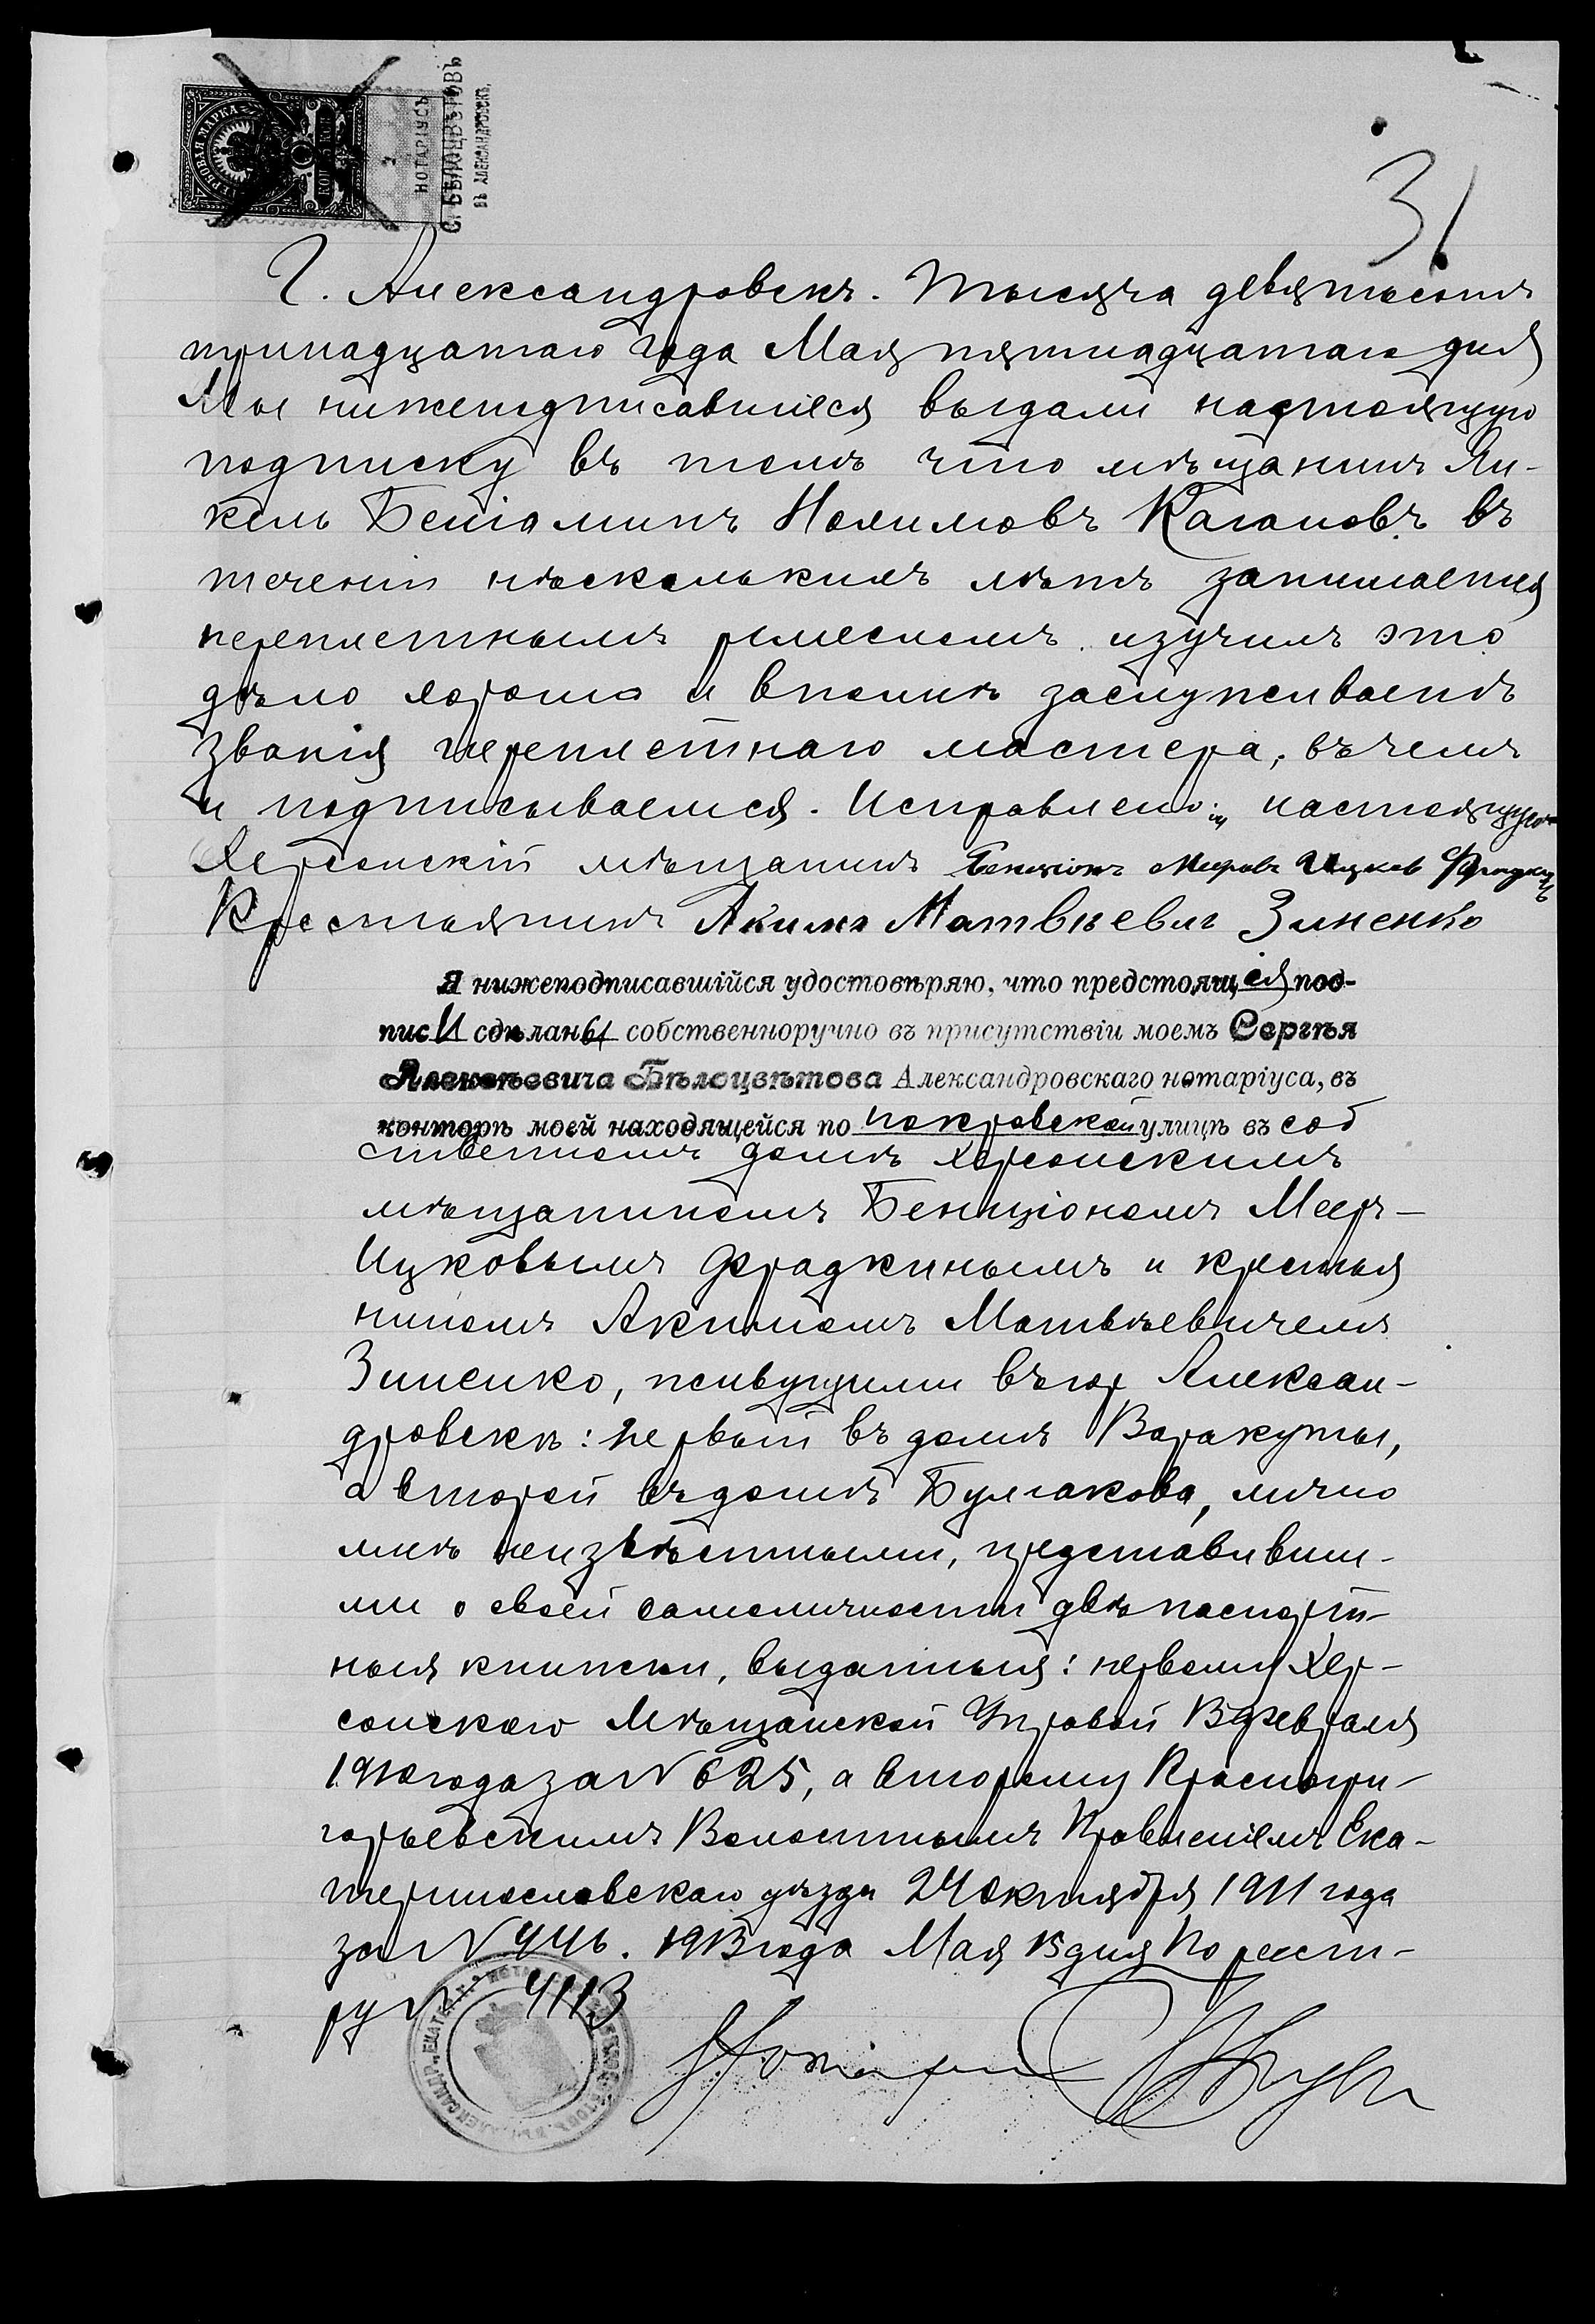 ГЕРБОВАЯ МАРКА
НОТАРІУСЪ
С. БѢЛОЦВѢТОВЪ
ВЪ АЛЕКСАНДРОВСКѢ.
31
Г. Александровскъ. Тысяча девятьсотъ
тринадцатаго года Мая пятнадцатаго дня
Мы нижеподписавшіеся выдали настоящую
подписку въ томъ что мѣщанинъ Ян-
кель Беніаминъ Нохимовъ Кагановъ въ
теченіи нѣсколькихъ лѣтъ занимается
переплетнымъ ремесломъ изучилъ это
дѣло хорошо и вполнѣ заслуживаетъ
званія переплетнаго мастера, въ чемъ
и подписываемся. Исправлено: „настоящую"
Херсонскій мѣщанинъ Бенціонъ Мееровъ Ицков Фрадкинъ
Крестьянинъ Акимъ Матвѣевич Зиненко
Я нижеподписавшійся удостовѣряю, что предстоящія под-
писи сдѣланы собственноручно въ присутствіи моемъ Сергѣя
Алексѣевича Бѣлоцвѣтова Александровскаго нотаріуса, въ
конторѣ моей находящейся по Покровской улицѣ въ соб
ственномъ домѣ Херсонскимъ
мѣщаниномъ Бенціономъ Меер-
Ицковымъ Фрадкинымъ и крестья
ниномъ Акимомъ Матвѣевичемъ
Зиненко, живущими въ гор Алексан-
дровскѣ: первый въ домѣ Воракуты,
а второй въ домѣ Булгакова, лично
мнѣ неизвѣстными, представивши-
ми о своей самоличности двѣ паспорт-
ныя книжки, выданныя: первому Хер-
сонскою Мѣщанской Управой 13 февраля
1910 года за N 625, а второму Красногри-
горьевскимъ Волостнымъ Правленіемъ Ека-
теринославскаго уѣзда 24 октября 1911 года
за N 446. 1913 года Мая 15 дня По реест-
ру N 4113
Нотаріусъ